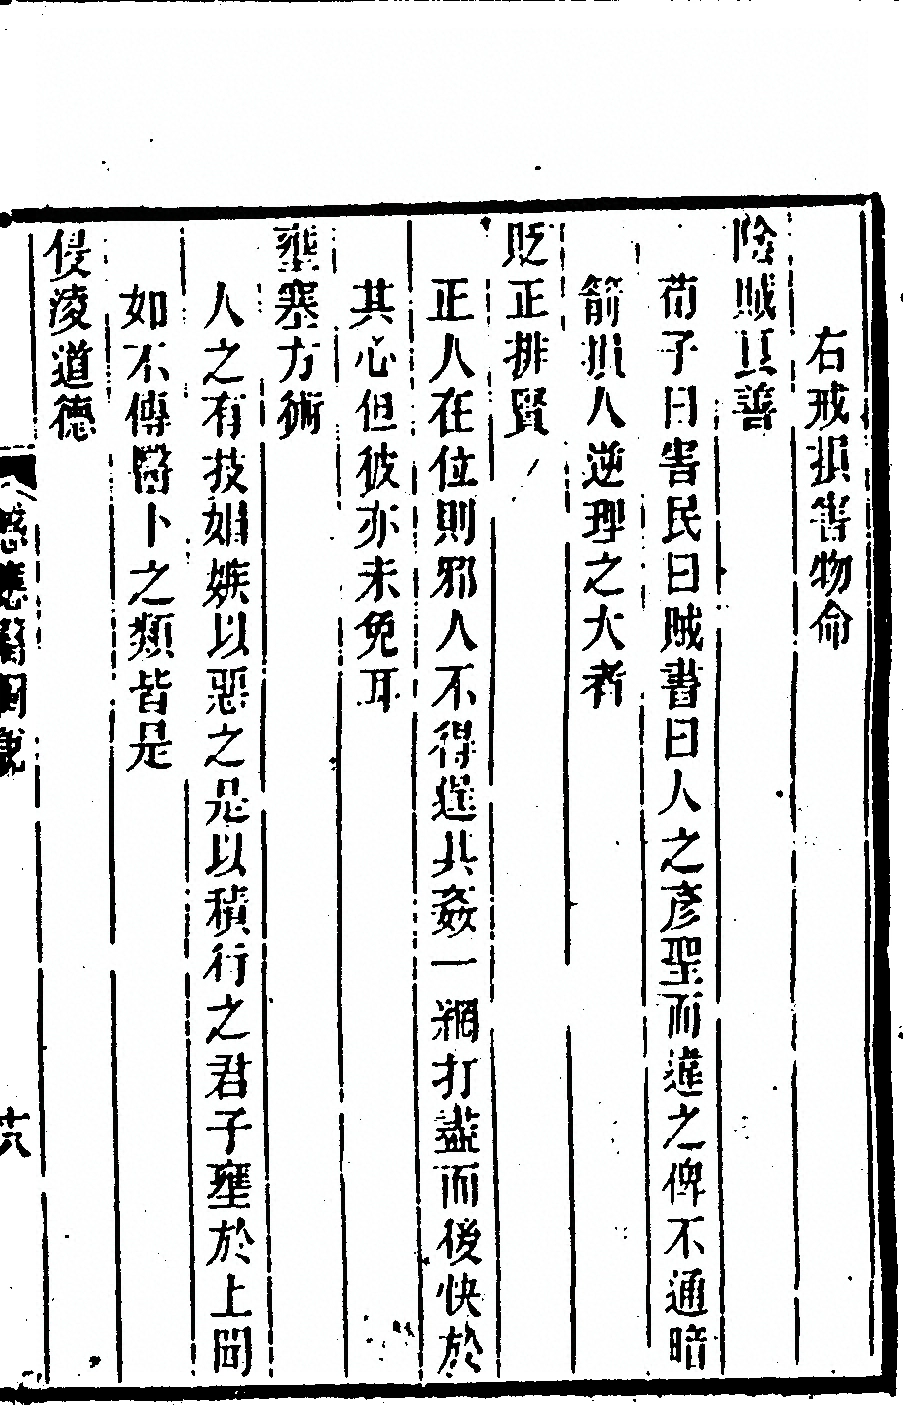 右戒損害物命
陰賊良善
荀子曰害民曰賊書曰人之彥聖而違之俾不通暗
箭損人逆理之大者
貶正排賢
正人在位則邪人不得逞其姦一網打盡而後快於
其心但彼亦未免耳
壅塞方術
人之有技媢嫉以惡之是以積行之君子壅於上聞
如不傳醫卜之類皆是
侵淩道德
十六